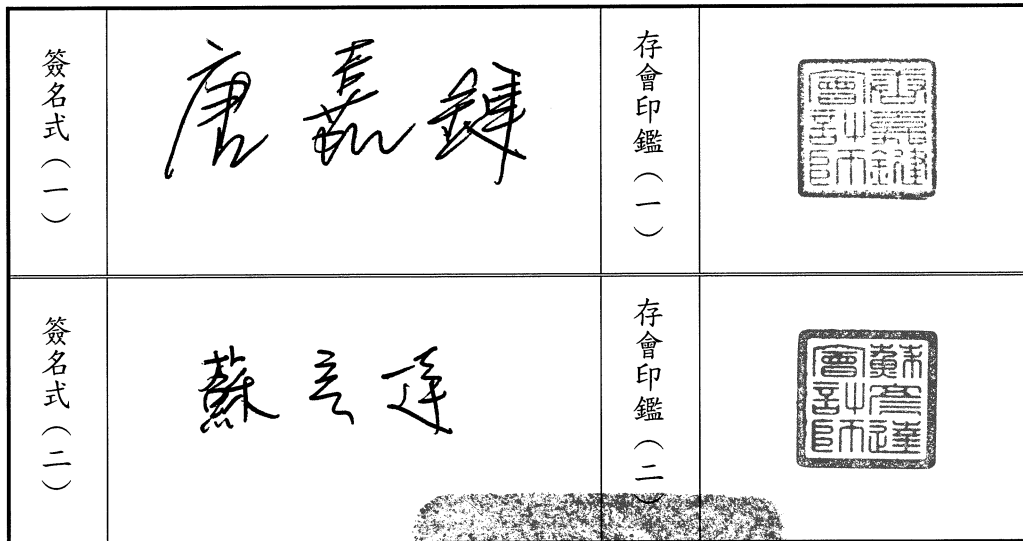 簽名式（一）
唐嘉鍵
存會印鑑（一）
唐嘉鍵
會計師
簽名式（二）
蘇彥達
存會印鑑（二）
蘇彥達
會計師